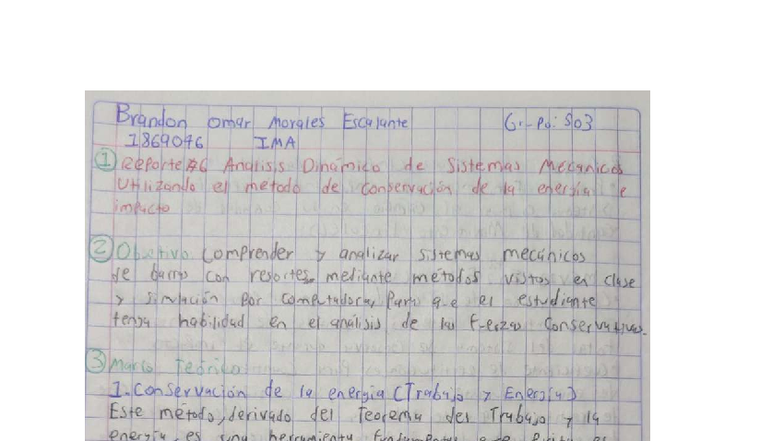 Brandon Omar Morales Escalante Grupo: 503
1869046 IMA
1 Reporte #6 Analisis Dinámico de Sistemas Mecánicos
Utilizando el método de conservación de la energía e
impacto
2 Objetivo Comprender y analizar sistemas mecánicos
de barras con resortes mediante métodos vistos en clase
y simulación por computadoras para que el estudiante
tenga habilidad en el análisis de las Fuerzas Conservativas.
3 Marco Teórico
1. Conservación de la energía (Trabajo y Energía)
Este método, derivado del Teorema del Trabajo y la
energía, es una herramienta fundamental que